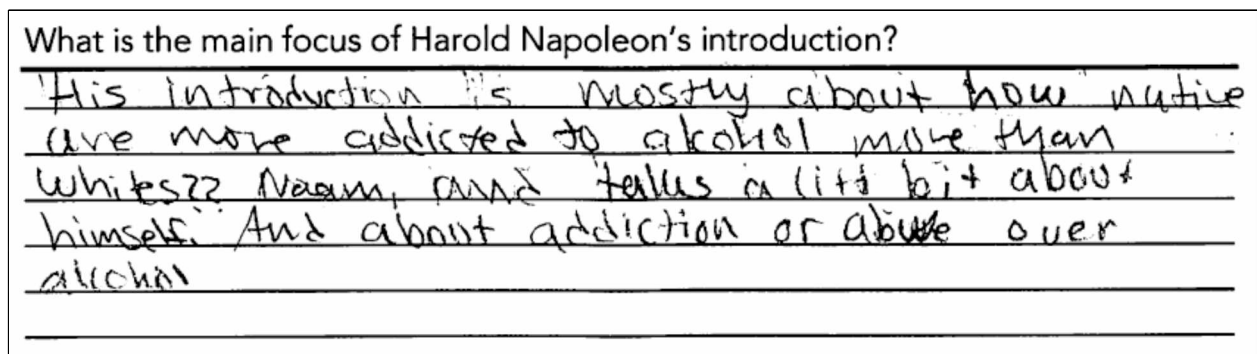 What is the main focus of Harold Napoleon's introduction?
His introduction is mostly about how native
are more addicted to alcohol more than
whites?? Naam, and talks a litt bit about
himself. And about addiction or abuse over
alcohol